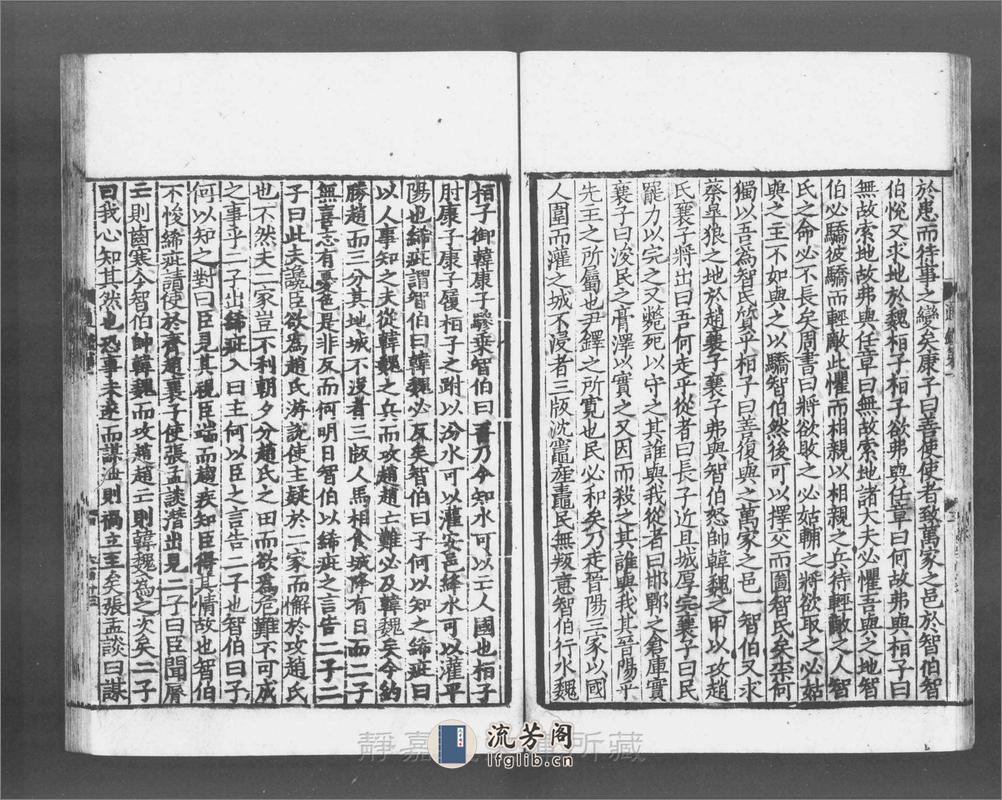 於患而待事之變矣康子曰善使使者致萬家之邑於智伯智
伯悅又求地於魏桓子桓子欲弗與任章曰何故弗與桓子曰
無故索地故弗與任章曰無故索地諸大夫必懼吾與之地智
伯必驕彼驕而輕敵此懼而相親以相親之兵待輕敵之人智
氏之命必不長矣周書曰將欲敗之必姑輔之將欲取之必姑
與之主不如與之以驕智伯然後可以擇交而圖智氏矣柰何
獨以吾為智氏質乎桓子曰善復與之萬家之邑一智伯又求
蔡皐狼之地於趙襄子襄子弗與智伯怒帥韓魏之甲以攻趙
氏襄子將出曰吾何走乎從者曰長子近且城厚完襄子曰民
罷力以完之又斃死以守之其誰與我從者曰邯鄲之倉庫實
襄子曰浚民之膏澤以實之又因而殺之其誰與我其晉陽乎
先主之所屬也尹鐸之所寬也民必和矣乃走晉陽三家以國
人圍而灌之城不浸者三版沈竈產鼃民無叛意智伯行水魏
桓子御韓康子驂乘智伯曰吾乃今知水可以亡人國也桓子
肘康子康子履桓子之跗以汾水可以灌安邑絳水可以灌平
陽也絺疵謂智伯曰韓魏必反矣智伯曰子何以知之絺疵曰
以人事知之夫從韓魏之兵而攻趙趙亡難必及韓魏矣今約
勝趙而三分其地城不沒者三版人馬相食城降有日而二子
無喜志有憂色是非反而何明日智伯以絺疵之言告二子二
子曰此夫讒臣欲為趙氏游說使主疑於二家而懈於攻趙氏
也不然夫二家豈不利朝夕分趙氏之田而欲為危難不可成
之事乎二子出絺疵入曰主何以臣之言告二子也智伯曰子
何以知之對曰臣見其視臣端而趨疾知臣得其情故也智伯
不悛絺疵請使於齊趙襄子使張孟談潛出見二子曰臣聞脣
亡則齒寒今智伯帥韓魏而攻趙趙亡則韓魏為之次矣二子
曰我心知其然也恐事未遂而謀泄則禍立至矣張孟談曰謀
流芳阁
lfglib.cn
靜嘉 所藏